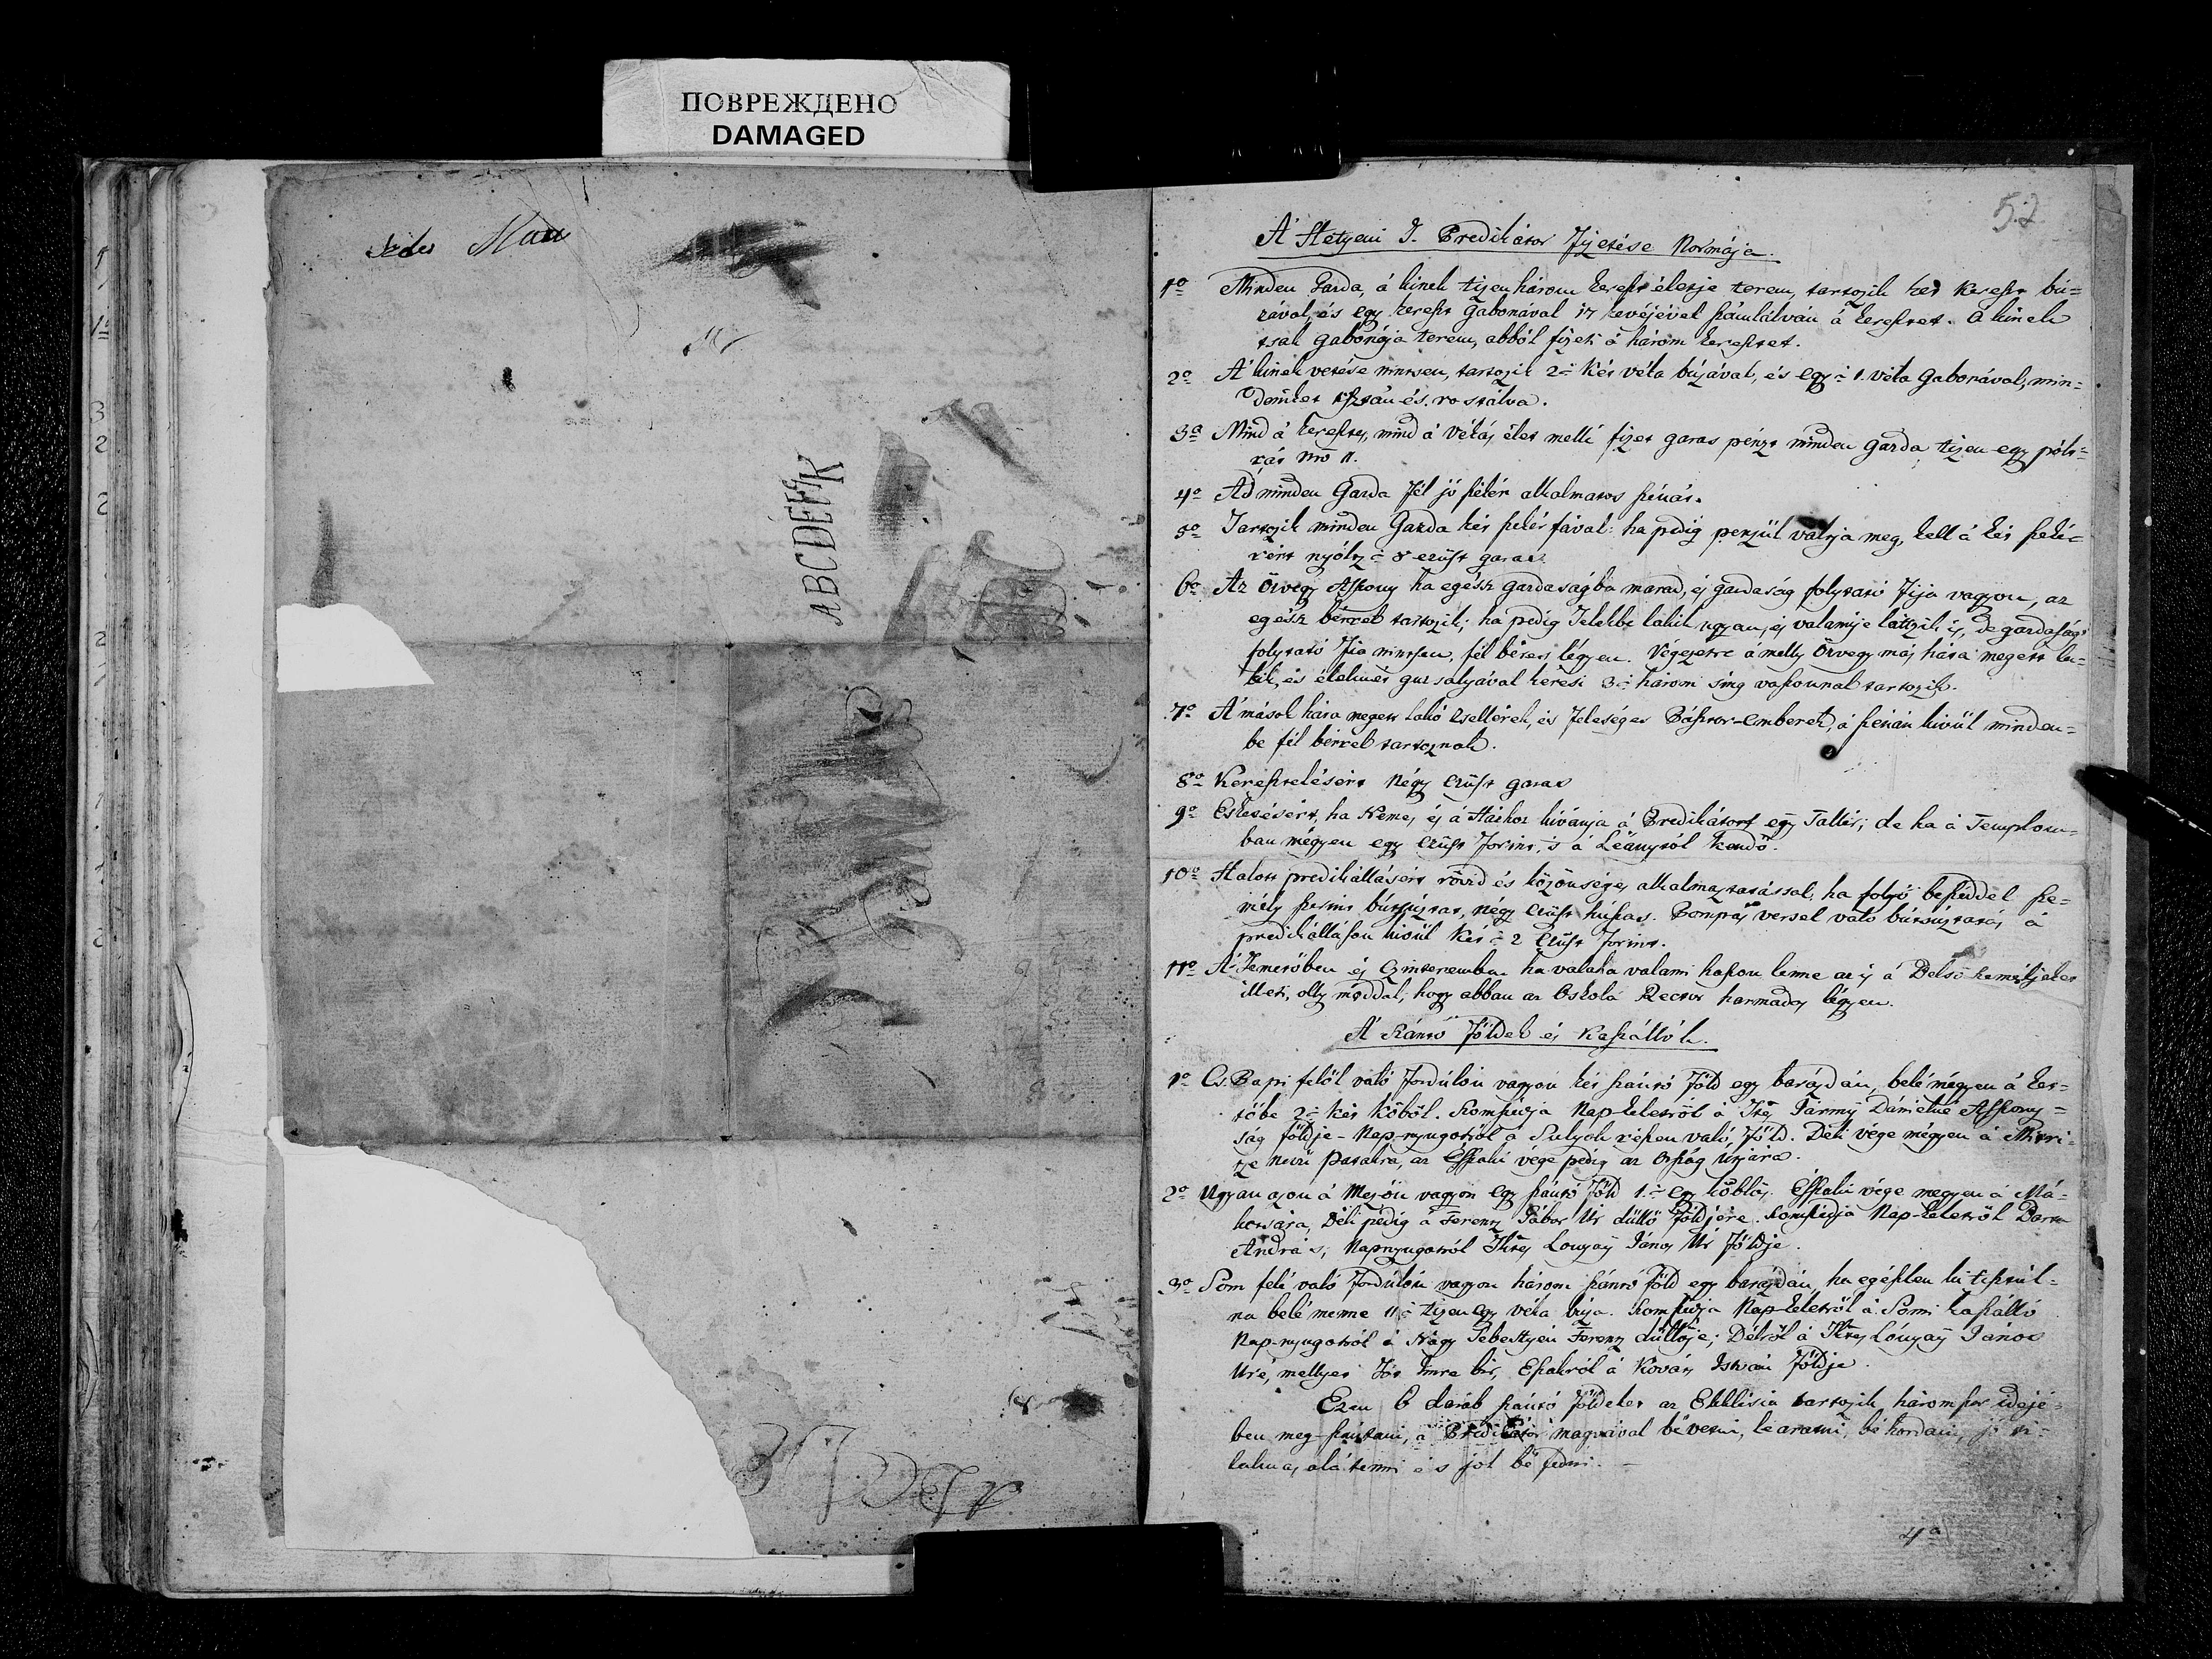 ПОВРЕЖДЕНО
DAMAGED
ABCDEFGK
52
A' Hetyeni I. Predikátor Fizetése Normája.
1o Minden Gazda, á kinek tizen három kereszt életje terem, tartozik két kereszt bú=
zával, és egy kereszt gabonával 17 kevéjével számlálván á keresztet. A kinek
tsak gabonája terem, abból fizeti á három keresztet.
2o A' kinek vetése nintsen, tartozik 2 = Két véka búzával, és egy = 1. véka gabonával, min=
deniket tisztán és rostálva.
3o Mind á keresztes, mind á vékás élet mellé fizet garas pénzt minden gazda tizen egy pólt=
rát nro 11.
4o Ad minden Gazda fél jó szekér alkalmatos szénát.
5o Tartozik minden Gazda két szekér fával: ha pedig pénzül váltja meg, kell á két szeké=
rért nyóltz = 8 ezüst garas.
6o Az Özvegy Aszszony ha egész gazdaságba marad, és gazdaság folytató Fija vagyon, az
egész bérrel tartozik; ha pedig Telekbe lakik ugyan, és valamije látszik is, de gazdaság
folytató Fia nintsen, fél béres légyen. Végezetre á melly Özvegy más háza megett la=
kik, és élelmét guzsalyával keresi 3 = három sing vászonnal tartozik.
7o A' mások háza megett lakó Zsellérek, és Feleséges Pásztor-emberek, á szénán kivül minden=
be fél bérrel tartoznak.
8o Keresztelésért Négy ezüst garas
9o Esketésért, ha Nemes és á Házhoz kivánja á Predikátort egy Tallér; de ha á Templom=
ban mégyen egy ezüst forint, 's á Leánytól Kendő.
10o Halott predikállásért rövid és közönséges alkalmaztatással, ha folyó beszéddel sze=
mély szerint bútsúztat, négy ezüst húszas. Pompás versel való bútsúztatás á
predikálláson kivül Két = 2 ezüst forint.
11o A' Temetőben és Czinteremben ha valaha valami haszon lenne az is á Belső személyeket
illeti, olly móddal, hogy abban az Oskola Rector harmados légyen.
A' Szántó Földek és Kaszállók.
1o Cs. Papi felől való fordúlón vagyon két szántó Föld egy barázdán, belé mégyen á ket=
tőbe 2 = két köböl. Szomszédja Nap-keletről á Ttes Dániel Aszszony=
ság földje - Nap-nyugotról á Sulyok részen való Föld. Déli vége mégyen á
patakra, az Észszaki vége pedig az Ország útjára.
2o Ugyan azon á Mezőn vagyon egy szántó Föld 1. = egy köblös. Észszaki vége megyen á Má=
Déli pedig á Ferentz Gábor Úr düllő Földjére. Szomszédja Nap-keletről
András, Napnyugotról Tktes Lónyay János Úr Földje.
3o Som felé való Fordúlón vagyon három szántó föld egy barázdán, ha egészszen ki tisztúl=
na belé menne 11 = tizenegy véka búza. Szomszédja Nap-keletről á Somi kaszálló
Nap-nyugotról á Nagy Sebestyén Ferentz düllője; Délről á Tktes Lónyay János
Úré, mellyet Imre bír, Északról á Kovács István Földje.
Ezen 6 darab szántó földeket az Ekklésia tartozik háromszor idejé=
ben meg-szántani, á Predikátor magvával bévetni, learatni, bé hordani, jó
alá tenni és jól bé fedni. -
4o